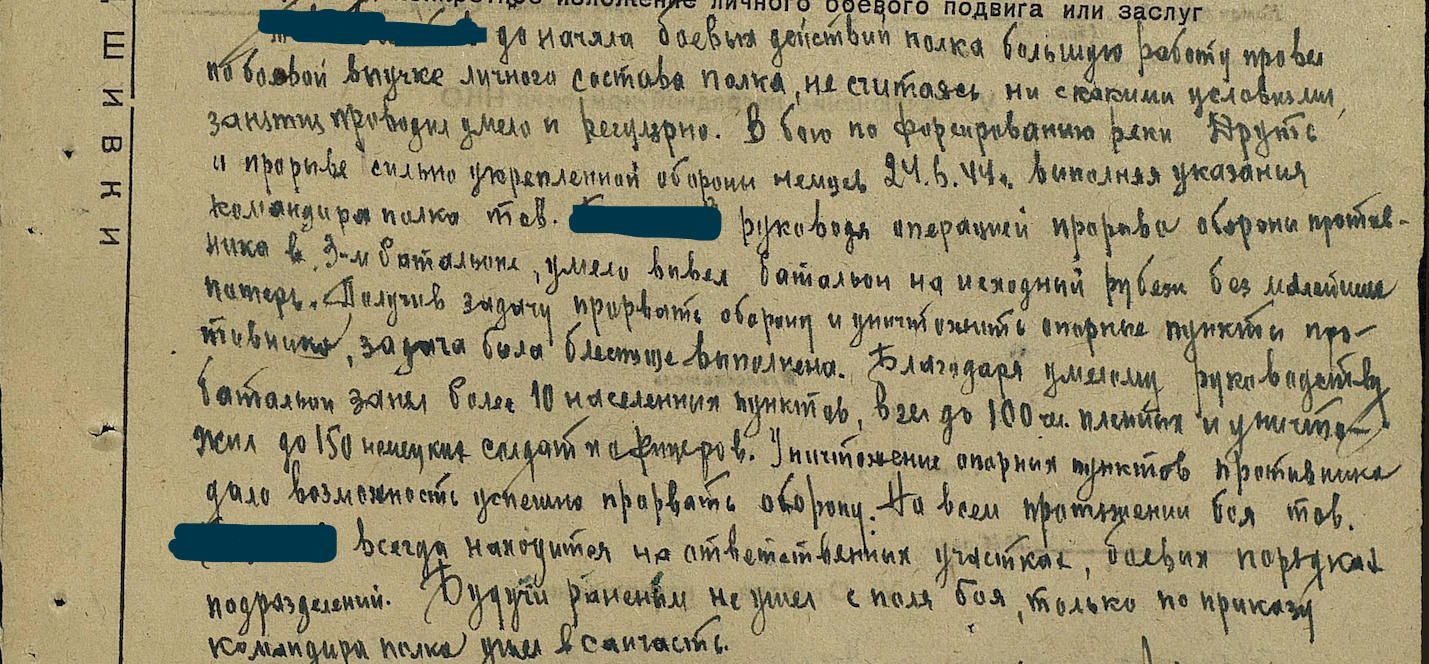 конкретное изложение личного боевого подвига или заслуг
до начала боевых действий полка большую работу провел
по боевой выучке личного состава полка, не считаясь ни с какими условиями,
занятия проводил умело и регулярно. В бою по форсированию реки Друть
и прорыве сильно укрепленной обороны немцев 24.6.44г. выполняя указания
командира полка тов. руководя операцией прорыва обороны против-
ника в 3-м батальоне, умело вывел батальон на исходный рубеж без малейших
потерь. Получив задачу прорвать оборону и уничтожить опорные пункты про-
тивника, задача была блестяще выполнена. Благодаря умелому руководству
батальон занял более 10 населенных пунктов, взял до 100 чел. пленных и уничто-
жил до 150 немецких солдат и офицеров. Уничтожение опорных пунктов противника
дало возможность успешно прорвать оборону. На всем протяжении боя тов.
всегда находится на ответственных участках, боевых порядках
подразделений. Будучи раненым не ушел с поля боя, только по приказу
командира полка ушел в санчасть.
ШИВКИ